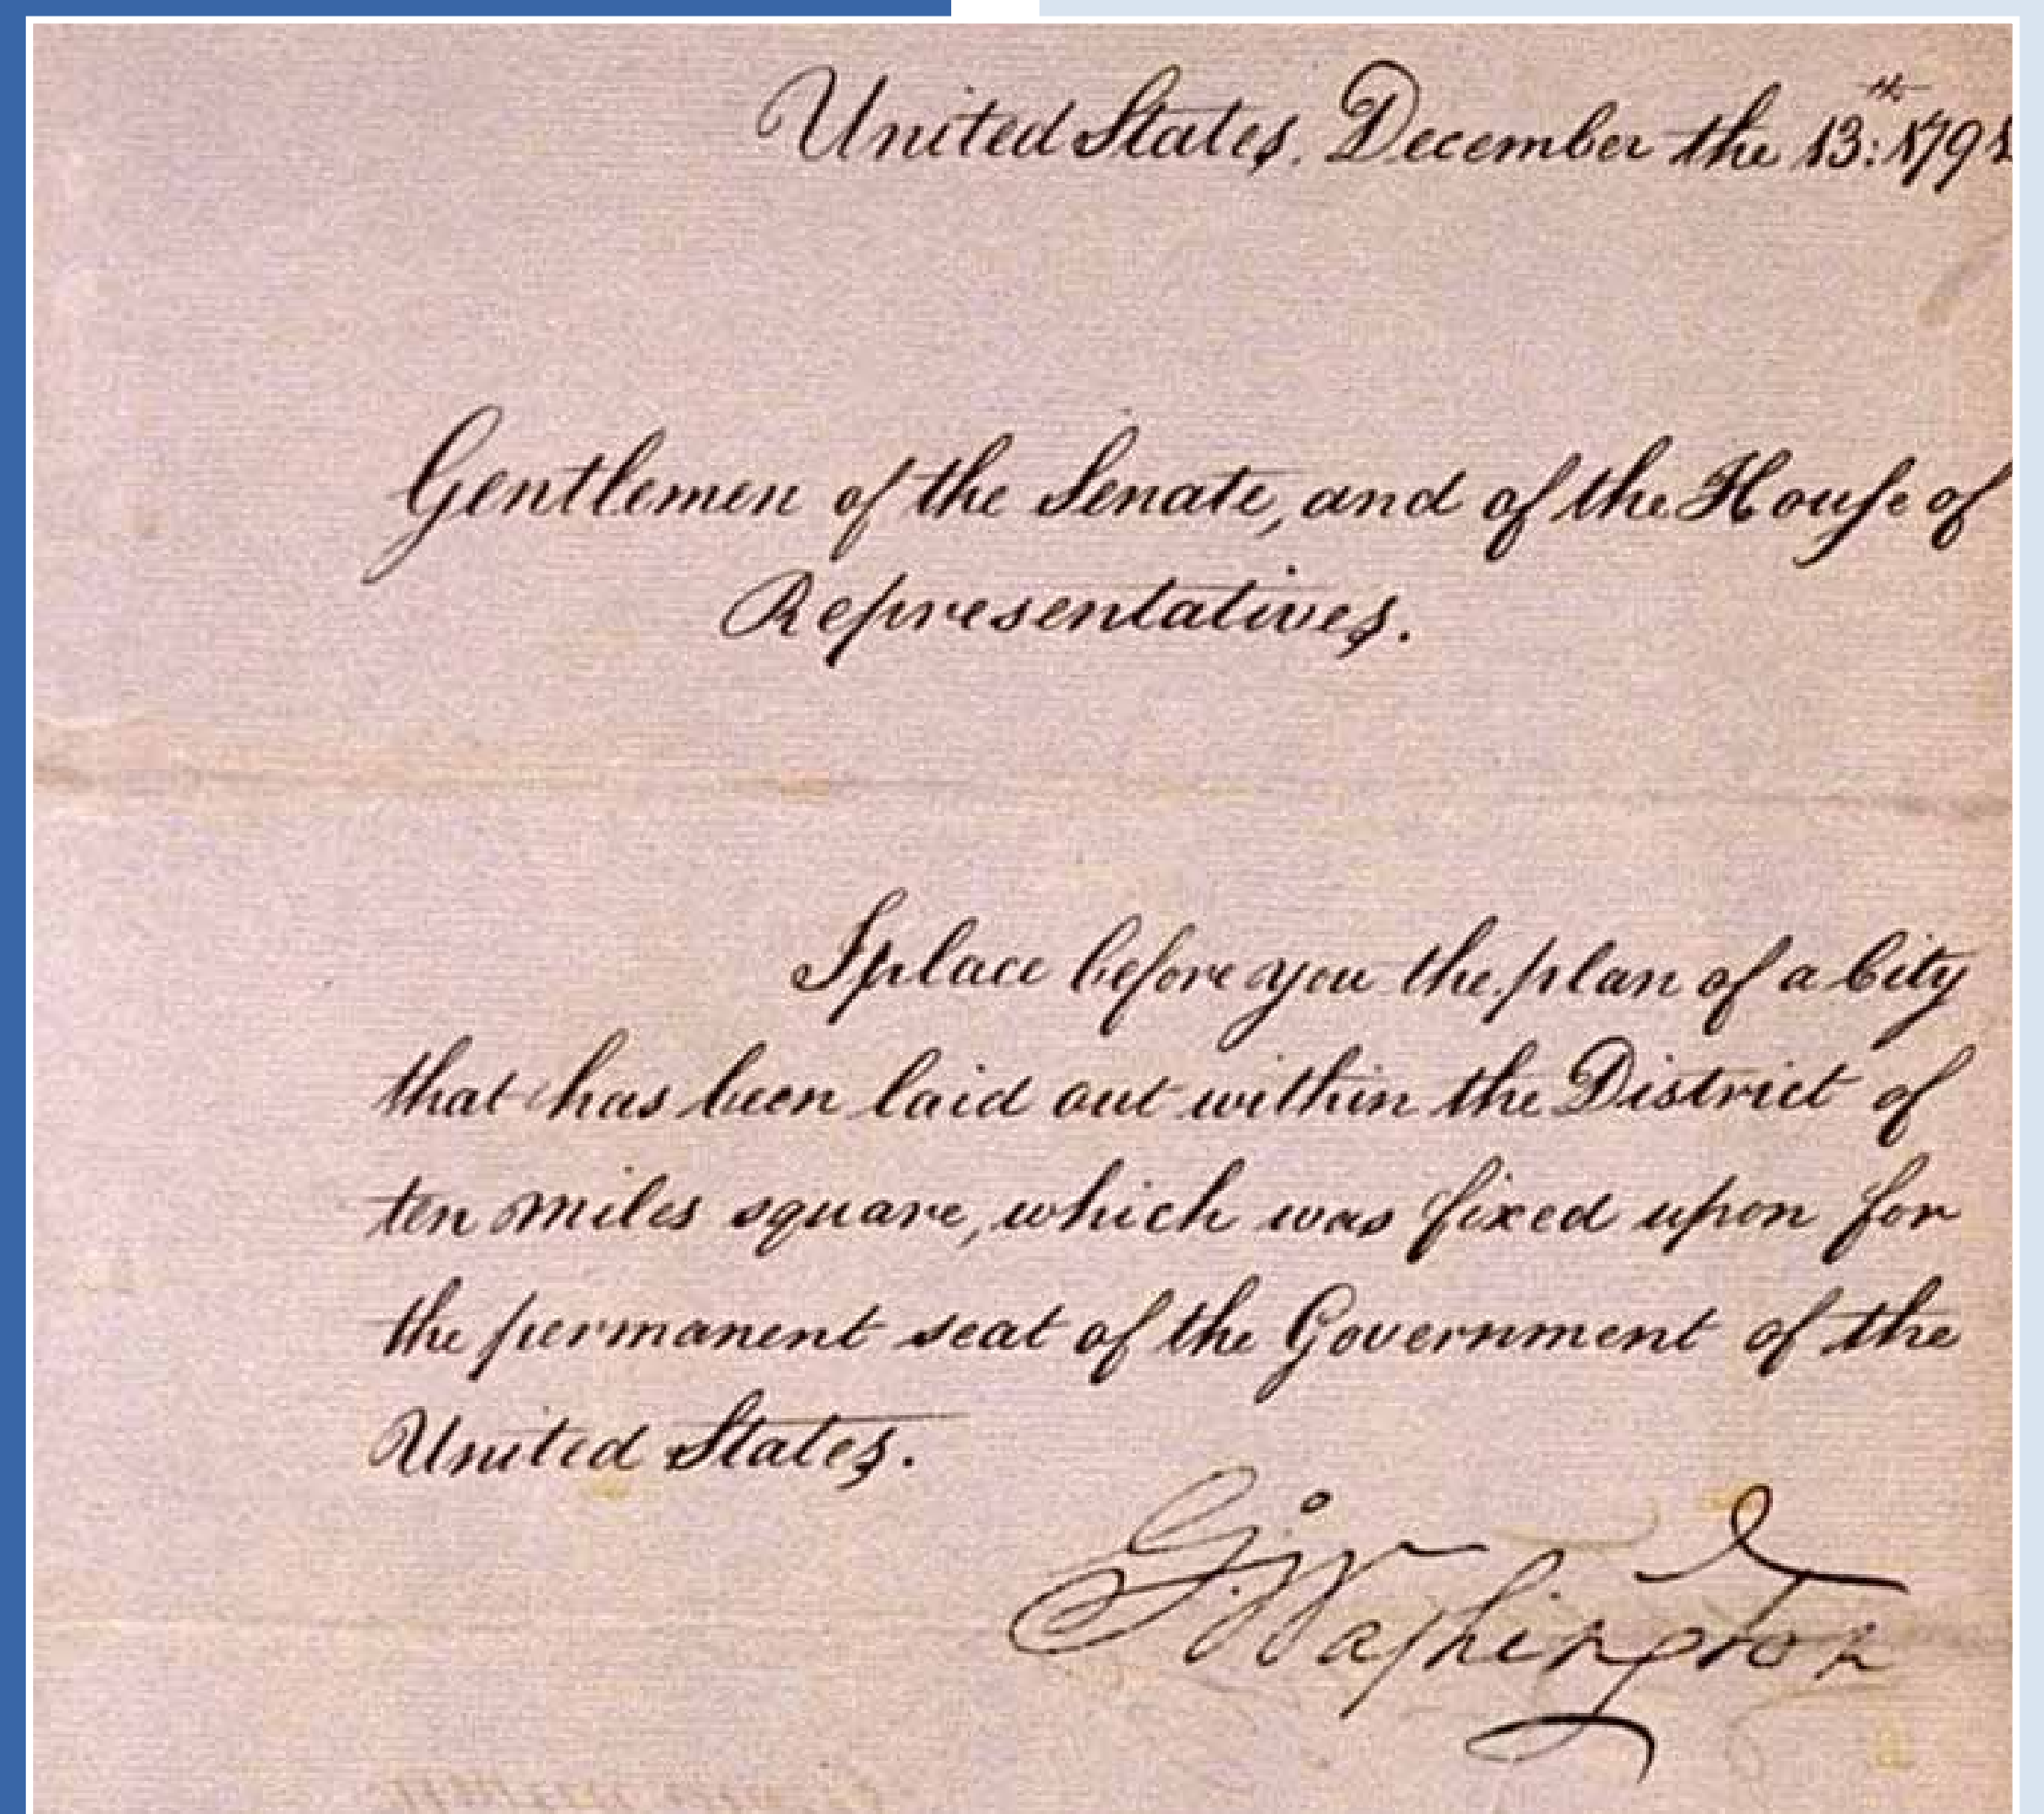 United States, December the 13:th 1791
Gentlemen of the Senate, and of the Houſe of
Representatives.
I place before you the plan of a City
that has been laid out within the District of
ten miles square, which was fixed upon for
the permanent seat of the Government of the
United States.
Go: Washington